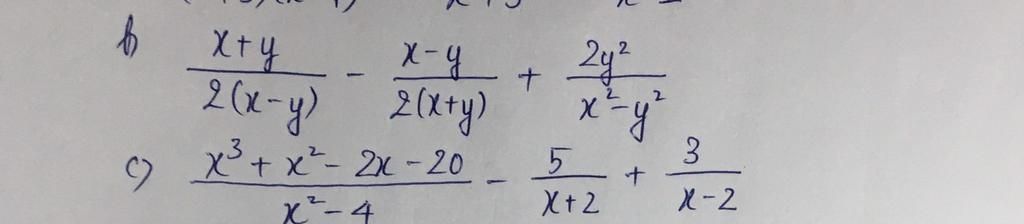 b) (x+y)/(2(x-y)) - (x-y)/(2(x+y)) + 2y²/(x²-y²)
c) (x³+x²-2x-20)/(x²-4) - 5/(x+2) + 3/(x-2)